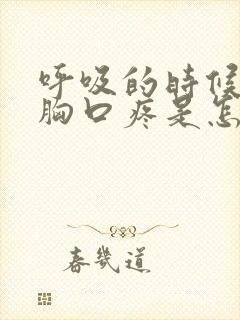 呼吸的时候
胸口疼是怎
春几道